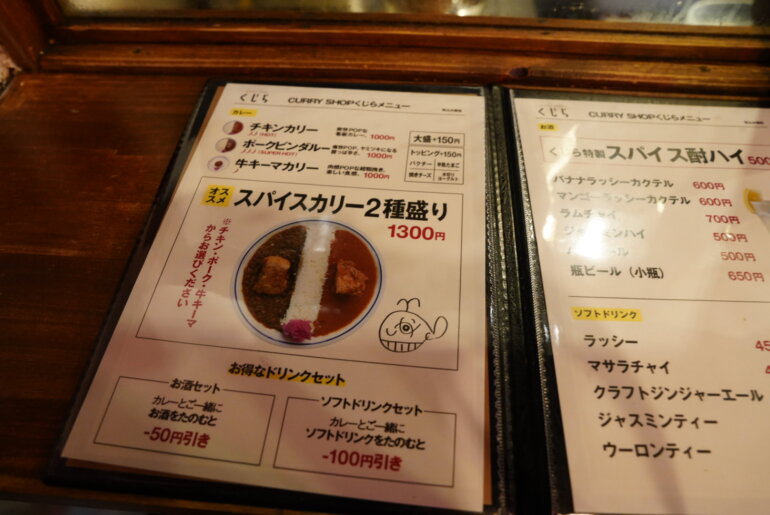 くじら
CURRY SHOPくじらメニュー
カレー
チキンカリー
(HOT)
1000円
ポークビンダルー
(SUPER HOT)
1000円
牛キーマカリー
1000円
大盛+150円
トッピング+150円
パクチー
半熟たまご
焼きチーズ
水切りヨーグルト
オススメ
スパイスカリー2種盛り
1300円
※チキン・ポーク・牛キーマ
からお選びください
お得なドリンクセット
お酒セット
カレーとご一緒に
お酒をたのむと
-50円引き
ソフトドリンクセット
カレーとご一緒に
ソフトドリンクをたのむと
-100円引き
くじら
CURRY SHOPくじらメニュー
お酒
くじら特製 スパイス酎ハイ 500
バナナラッシーカクテル 600円
マンゴーラッシーカクテル 600円
ラムチャイ 700円
ジャスミンハイ 500円
500円
瓶ビール（小瓶） 650円
ソフトドリンク
ラッシー
マサラチャイ
クラフトジンジャーエール
ジャスミンティー
ウーロンティー